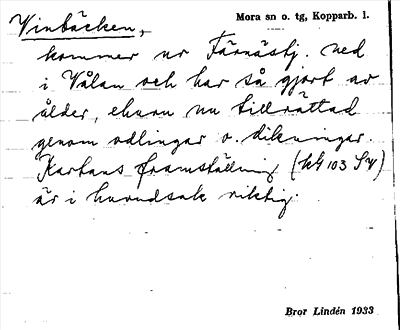 Vinbäcken,
Mora sn o. tg, Kopparb. l.
kommer ur Färnästj. ned
i Vålan och har så gjort av
ålder, ehuru nu tillrättad
genom odlingar o. dikningar.
Kartans framställning (kbl 103 SV)
är i huvudsak riktig.
Bror Lindén 1933